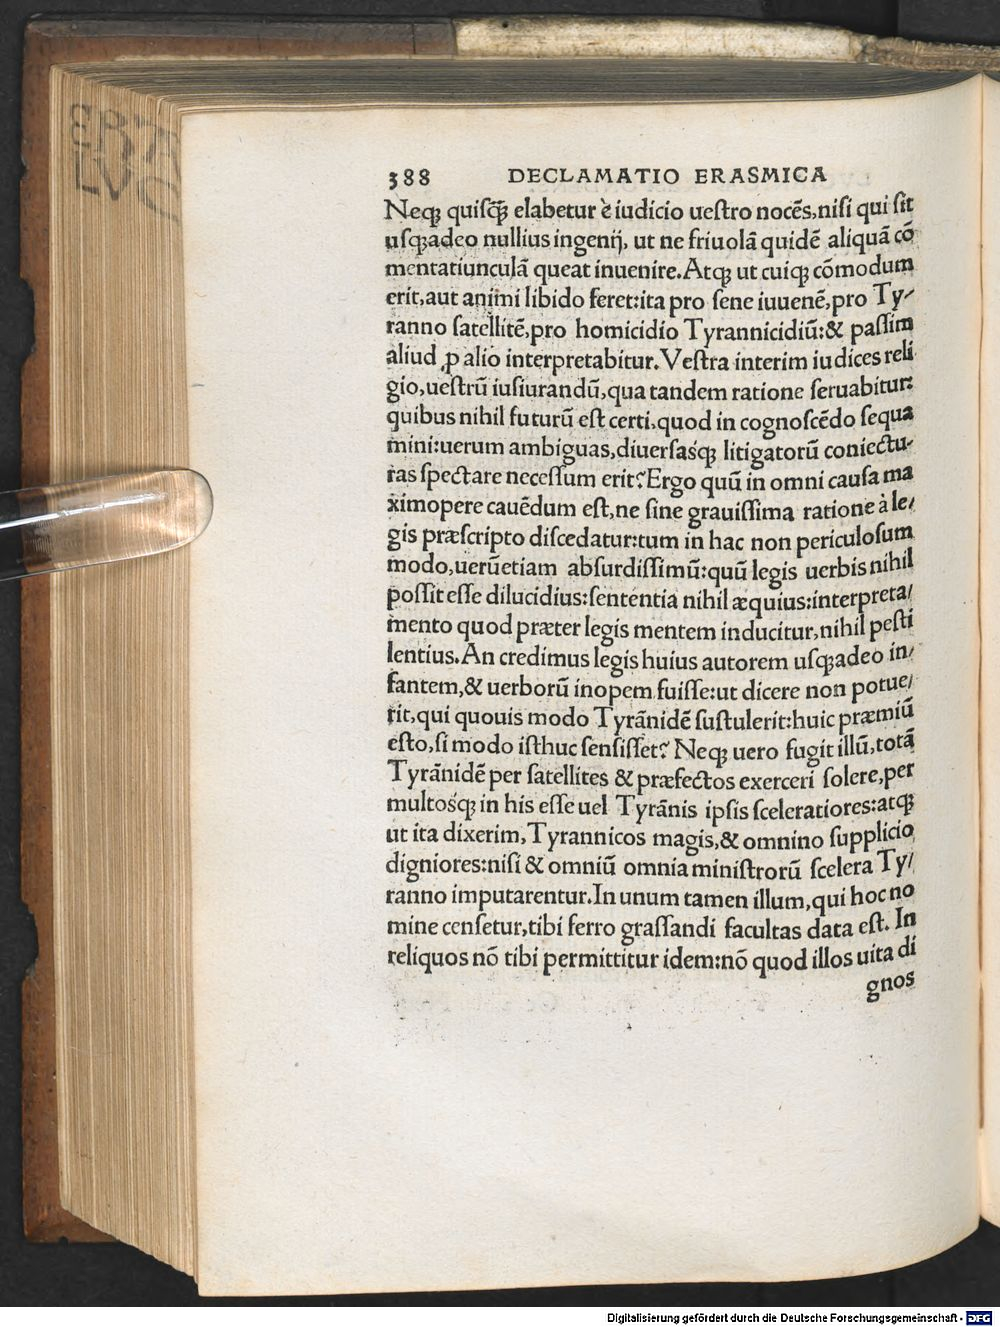 ERA
LVC
388 DECLAMATIO ERASMICA
Neqꝫ quiſqꝫ̃ elabetur è iudicio ueſtro nocẽs,niſi qui ſit
uſqꝫadeo nullius ingenij, ut ne friuolã quidẽ aliquã cõ
mentatiunculã queat inuenire.Atqꝫ ut cuiqꝫ cõmodum
erit,aut animi libido feret:ita pro ſene iuuenẽ,pro Ty-
ranno ſatellitẽ,pro homicidio Tyrannicidiũ:& paſſim
aliud ꝓ alio interpretabitur.Veſtra interim iudices reli
gio,ueſtrũ iuſiurandũ,qua tandem ratione ſeruabitur:
quibus nihil futurũ eſt certi,quod in cognoſcẽdo ſequa
mini:uerum ambiguas,diuerſasqꝫ litigatorũ coniectu-
ras ſpectare neceſſum erit? Ergo quũ in omni cauſa ma
ximopere cauẽdum eſt,ne ſine grauiſſima ratione à le/
gis præſcripto diſcedatur:tum in hac non periculoſum
modo,uerũetiam abſurdiſſimũ:quũ legis uerbis nihil
poſſit eſſe dilucidius:ſententia nihil æquius:interpreta/
mento quod præter legis mentem inducitur,nihil peſti
lentius.An credimus legis huius autorem uſqꝫadeo in/
fantem,& uerborũ inopem fuiſſe:ut dicere non potue/
rit,qui quouis modo Tyrãnidẽ ſuſtulerit:huic præmiũ
eſto,ſi modo iſthuc ſenſiſſet? Neqꝫ uero fugit illũ,totã
Tyrãnidẽ per ſatellites & præfectos exerceri ſolere,per
multosqꝫ in his eſſe uel Tyrãnis ipſis ſceleratiores:atqꝫ
ut ita dixerim,Tyrannicos magis,& omnino ſupplicio
digniores:niſi & omniũ omnia miniſtrorũ ſcelera Ty/
ranno imputarentur.In unum tamen illum,qui hoc no
mine cenſetur,tibi ferro graſſandi facultas data eſt. In
reliquos nõ tibi permittitur idem:nõ quod illos uita di
gnos
Digitalisierung gefördert durch die Deutsche Forschungsgemeinschaft - DFG